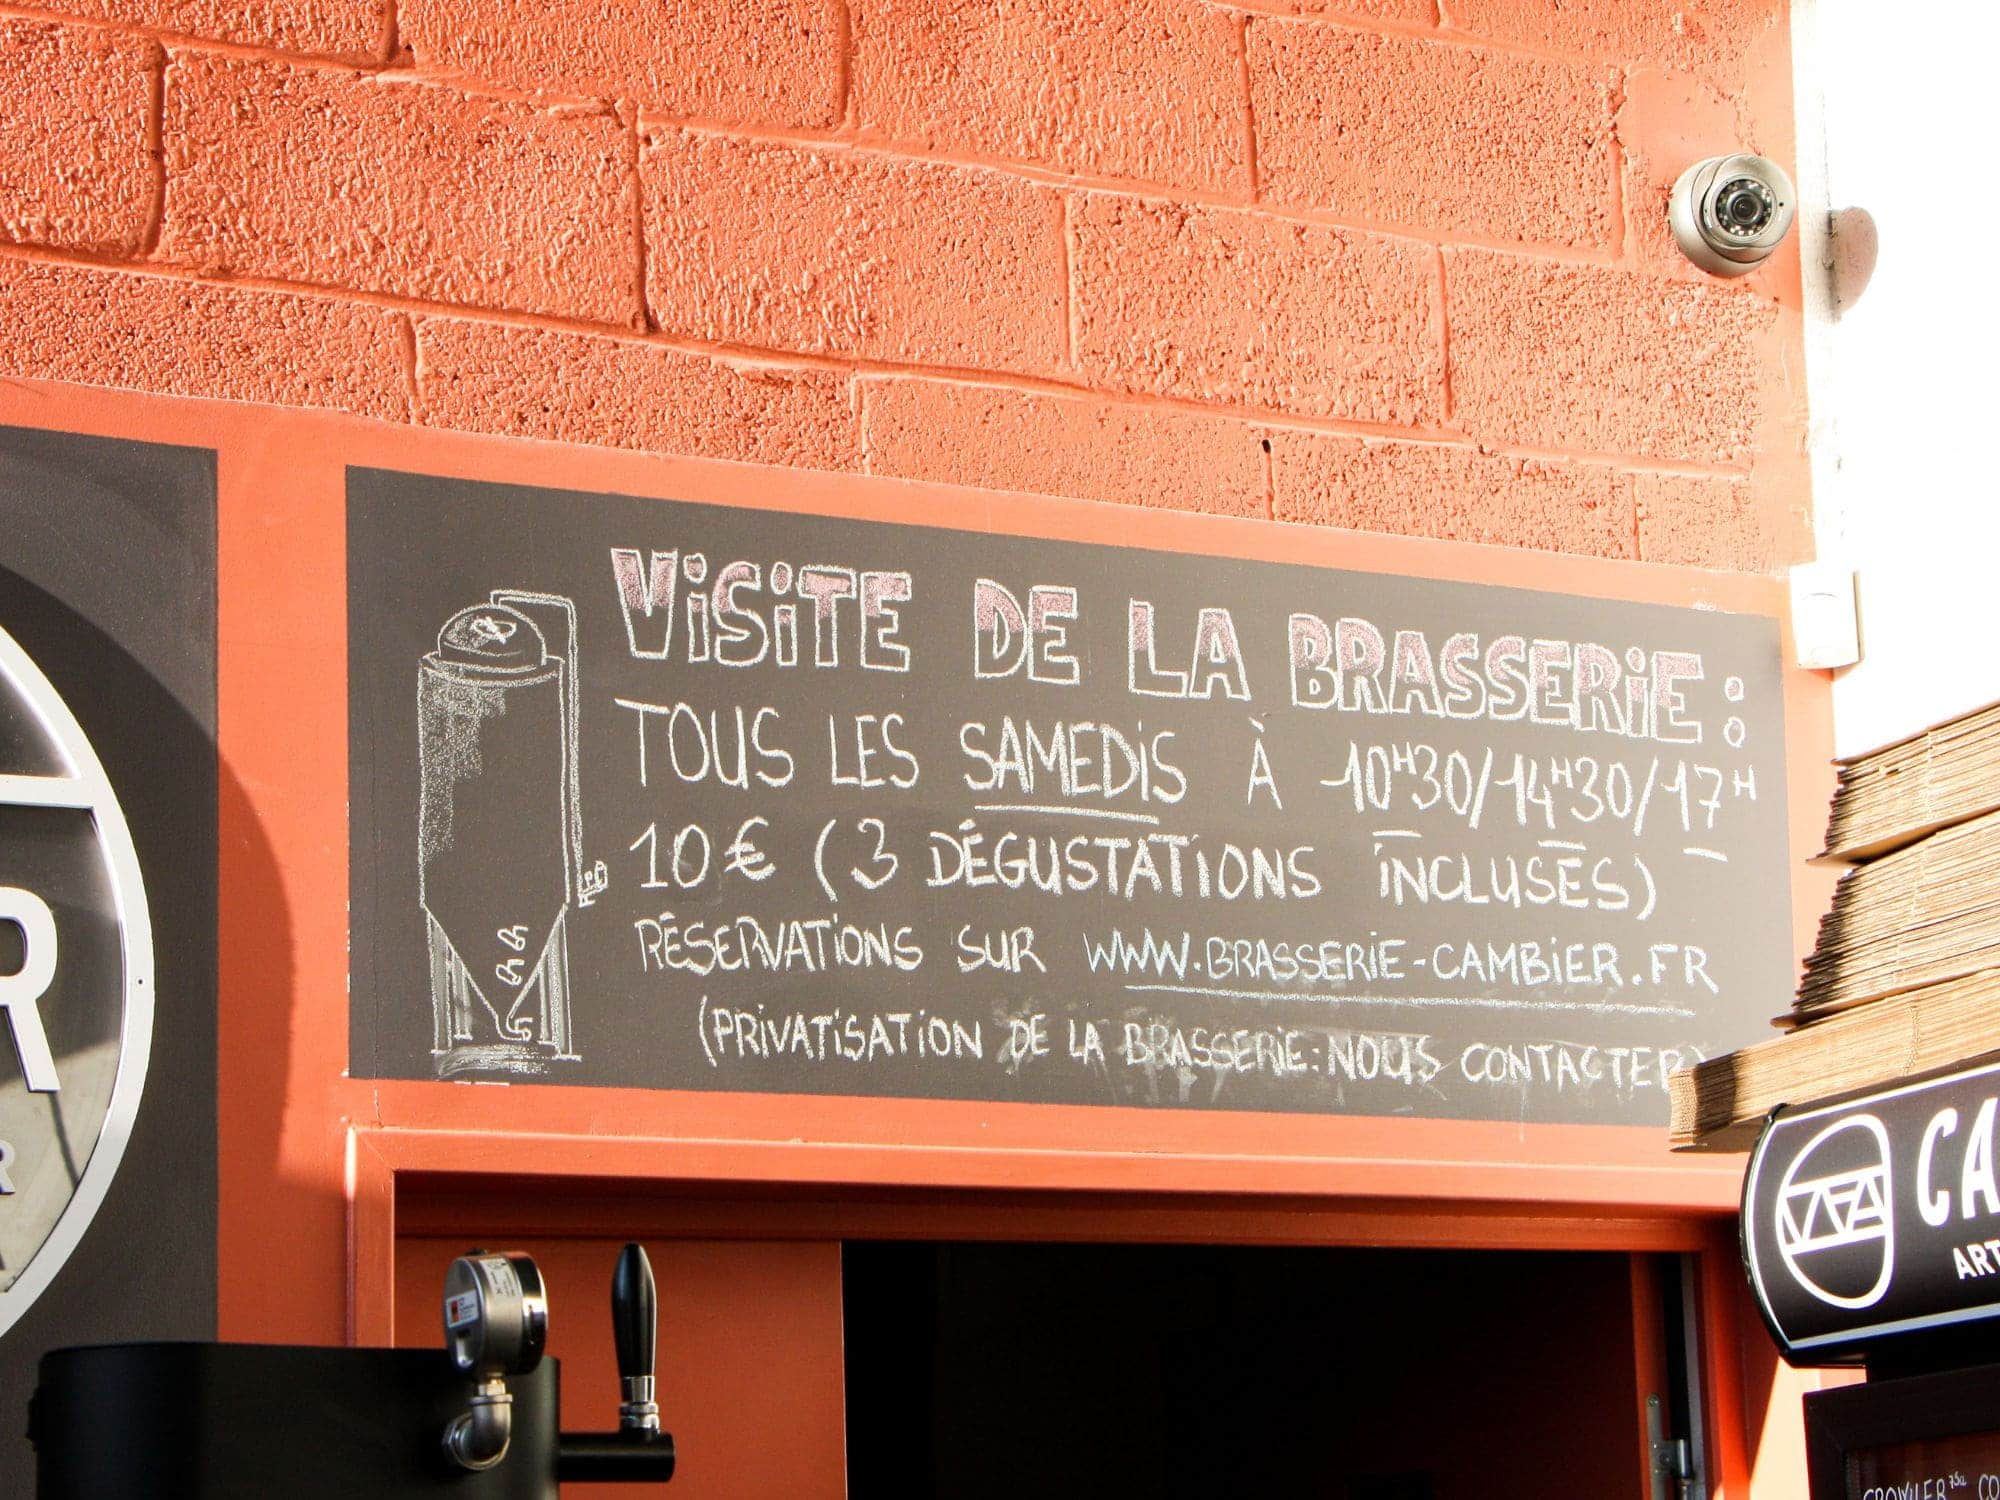 VISITE DE LA BRASSERIE :
TOUS LES SAMEDIS À 10H30/14H30/17H
10€ (3 DÉGUSTATIONS INCLUSES)
RÉSERVATIONS SUR WWW.BRASSERIE-CAMBIER.FR
(PRIVATISATION DE LA BRASSERIE : NOUS CONTACTER)
R
R
CA
ART
GROWLER CO